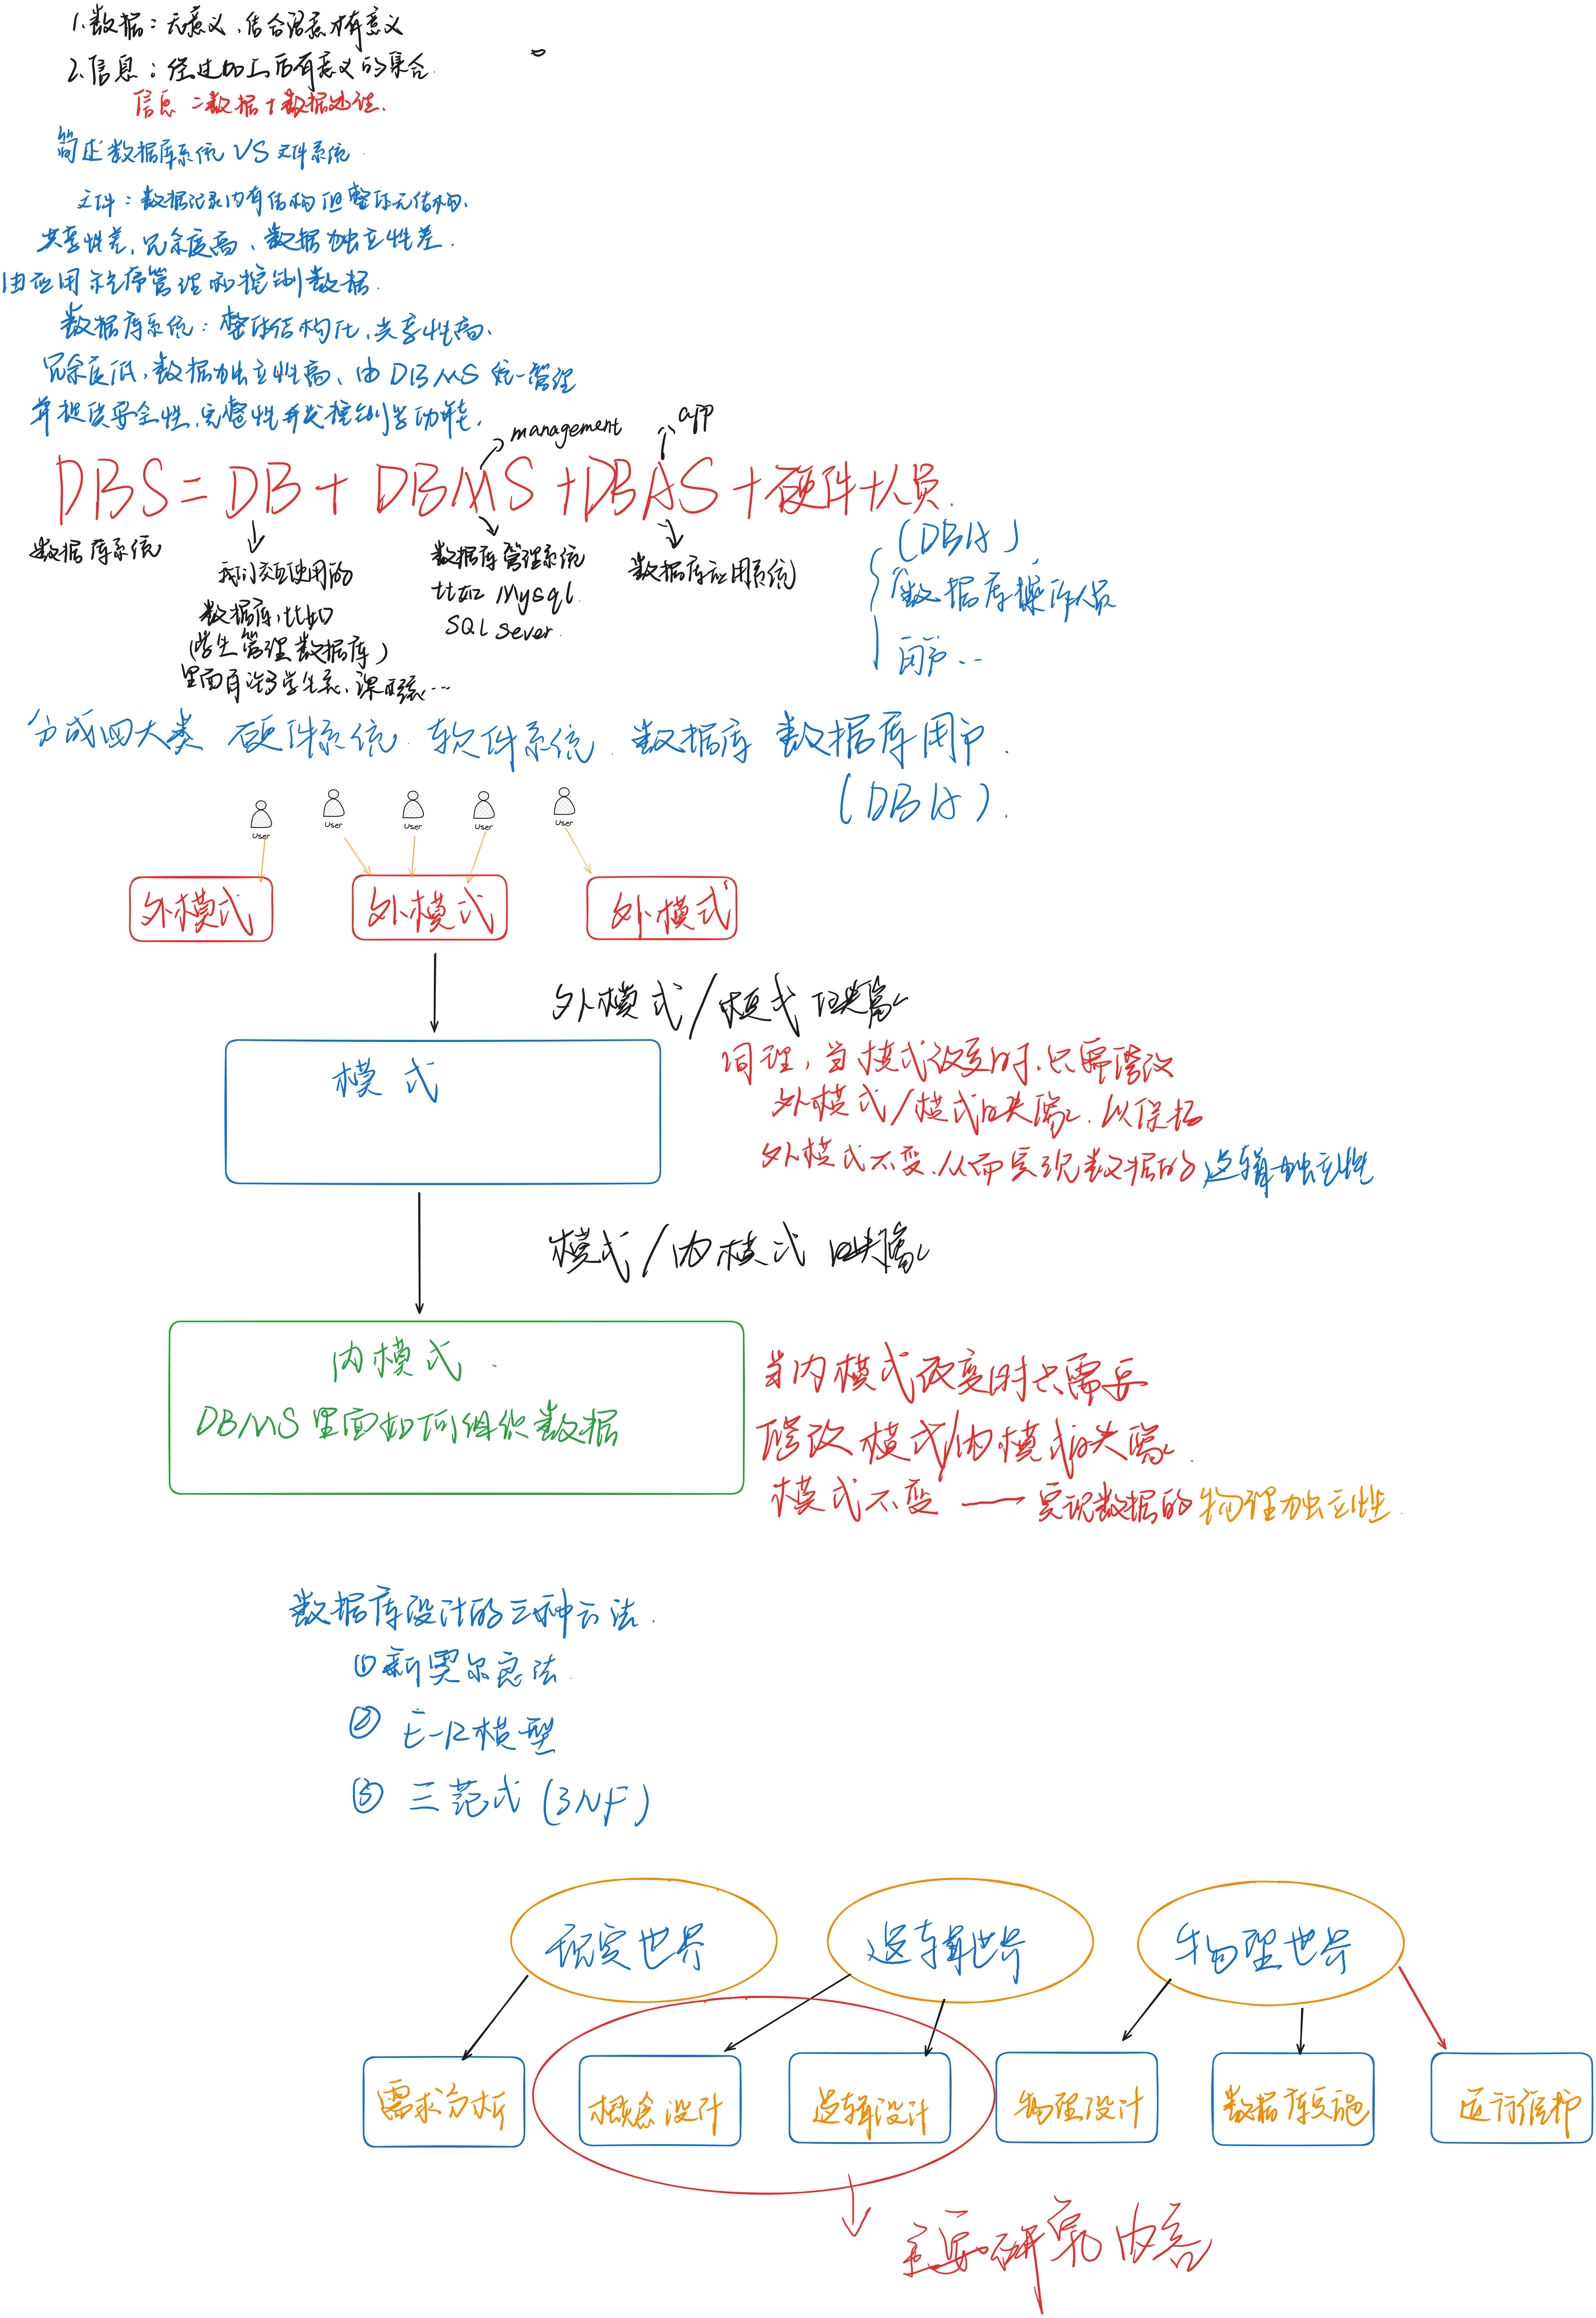 1.数据：无意义，结合语意才有意义
2.信息：经过加工后有意义的集合.
信息 = 数据 + 数据处理.
简述数据库系统 VS 文件系统
文件：数据记录内有结构但整体无结构.
共享性差、冗余度高、数据独立性差.
由应用程序管理和控制数据.
数据库系统：整体结构化、共享性高、
冗余度低、数据独立性高、由DBMS统一管理
并提供安全性、完整性并发控制等功能.
management
app
DBS = DB + DBMS + DBAS + 硬件 + 人员.
数据库系统
我们交互使用的
数据库,比如
(学生管理数据库)
里面有许多学生表、课程表...
数据库管理系统
比如 Mysql.
SQL Sever.
数据库应用系统
(DBA)
数据库操作人员
用户...
分成四大类 硬件系统. 软件系统. 数据库 数据库用户.
(DBA).
User
User
User
User
User
外模式
外模式
外模式
外模式/模式 映像
模式
同理，当模式改变时、只需修改
外模式/模式映像. 以保持
外模式不变.从而实现数据的逻辑独立性
模式/内模式 映像
内模式.
DBMS里面如何组织数据
当内模式改变时只需要
修改模式/内模式映像.
模式不变 — 实现数据的物理独立性.
数据库设计的三种方法.
①新奥尔良法.
② E-R模型
③ 三范式 (3NF)
现实世界
逻辑世界
物理世界
需求分析
概念设计
逻辑设计
物理设计
数据库实施
运行维护
主要研究内容